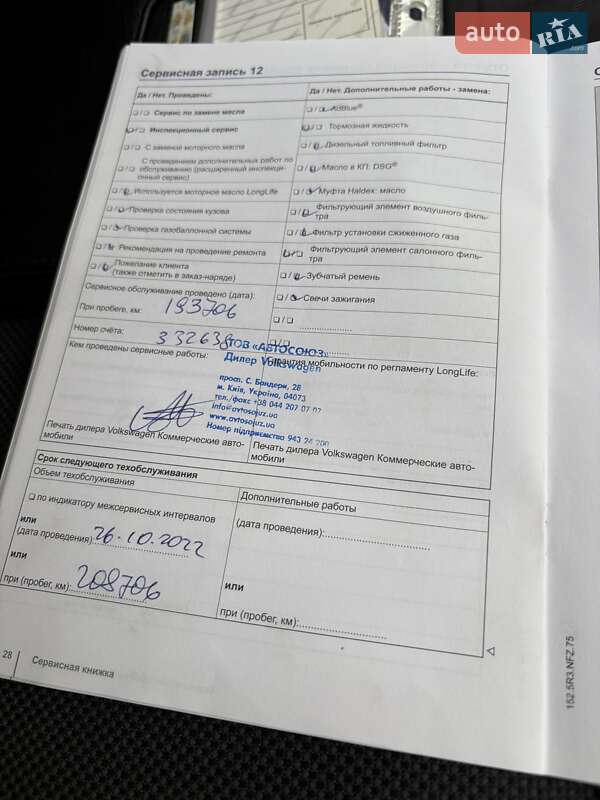 auto RIA.com
Сервисная запись 12
Да / Нет. Проведены:
Сервис по замене масла
Инспекционный сервис
С заменой моторного масла
С проведением дополнительных работ по
обслуживанию (расширенный инспекци-
онный сервис)
Используется моторное масло LongLife
Проверка состояния кузова
Проверка газобаллонной системы
Рекомендация на проведение ремонта
Пожелание клиента
(также отметить в заказ-наряде)
Сервисное обслуживание проведено (дата):
При пробеге, км: 193706
Номер счёта: 332638
Кем проведены сервисные работы:
Печать дилера Volkswagen Коммерческие авто-
мобили
Да / Нет. Дополнительные работы - замена:
AdBlue®
Тормозная жидкость
Дизельный топливный фильтр
Масло в КП: DSG®
Муфта Haldex: масло
Фильтрующий элемент воздушного филь-
тра
Фильтр установки сжиженного газа
Фильтрующий элемент салонного филь-
тра
Зубчатый ремень
Свечи зажигания
Гарантия мобильности по регламенту LongLife:
Печать дилера Volkswagen Коммерческие авто-
мобили
ТОВ «АВТОСОЮЗ»
Дилер Volkswagen
просп. С. Бандери, 28
м. Київ, Україна, 04073
тел./факс +38 044 207 07 07
info@avtosojuz.ua
www.avtosojuz.ua
Номер підприємства 943 24 200
Срок следующего техобслуживания
Объем техобслуживания
по индикатору межсервисных интервалов
или
(дата проведения): 26.10.2022
или
при (пробег, км): 208706
Дополнительные работы
(дата проведения):
или
при (пробег, км):
28
Сервисная книжка
152.5R3.NFZ.75